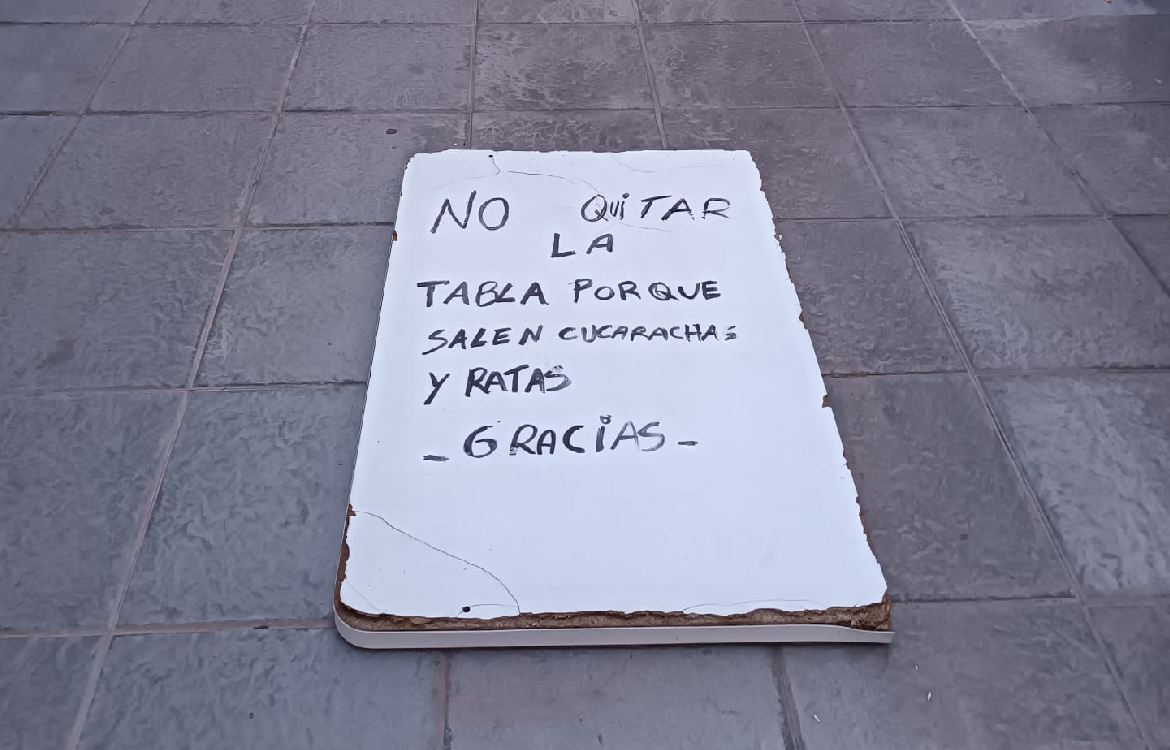 NO QUiTAR
LA
TABLA PORQUE
SALEN CUCARACHAS
Y RATAS
- GRACiAS -